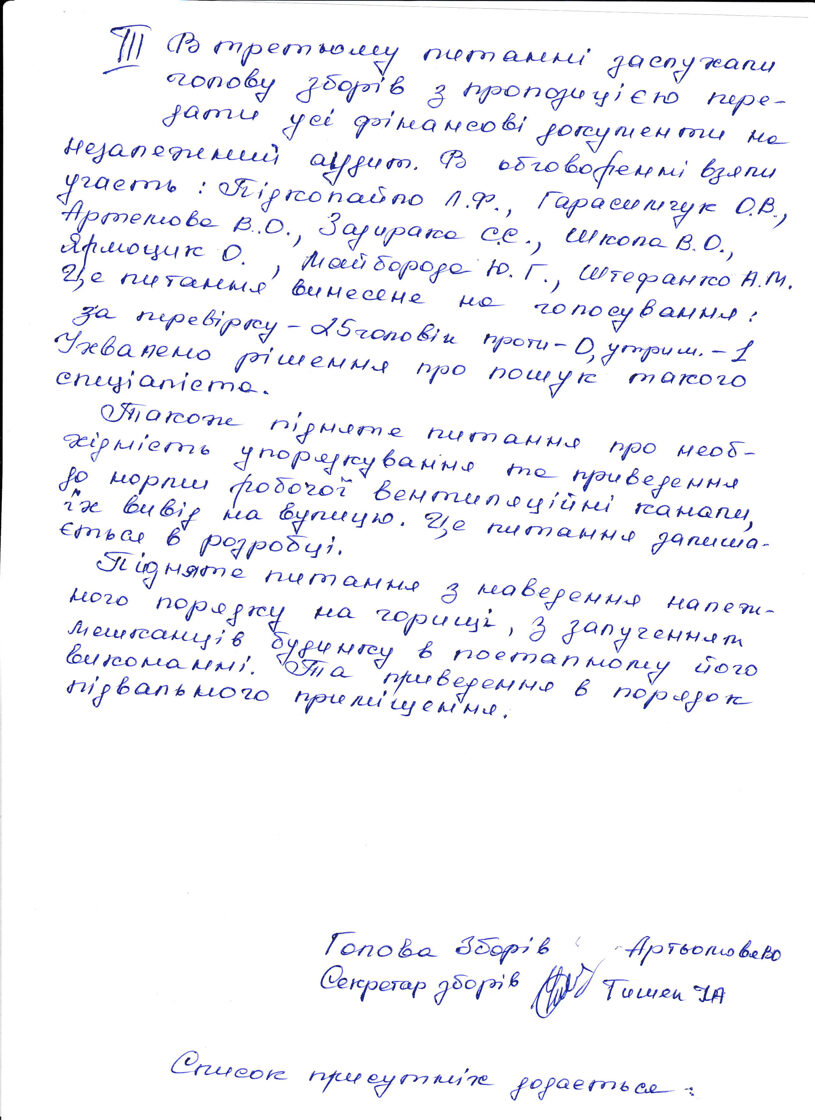 III В третьому питанні заслухали
голову зборів з пропозицією пере-
дати усі фінансові документи на
незалежний аудит. В обговоренні взяли
участь: Підкопайло Л.Ф., Гарасимчук О.В.,
Артемова В.О., Задирака С.Є., Школа В.О.,
Ярмощик О. , Майборода Ю.Г., Штефанко А.М.
Це питання винесене на голосування:
за перевірку – 25 чоловік проти – 0, утрим. – 1
Ухвалено рішення про пошук такого
спеціаліста.
Також підняте питання про необ-
хідність упорядкування та приведення
до норми робочої вентиляційні канали,
їх вивід на вулицю. Це питання залиша-
ється в розробці.
Підняте питання з наведення належ-
ного порядку на горищі, з залученням
мешканців будинку в поетапному його
виконанні. Та приведення в порядок
підвального приміщення.
Голова Зборів Артьомова ВО
Секретар зборів Тишек ІА
Список присутніх додається: